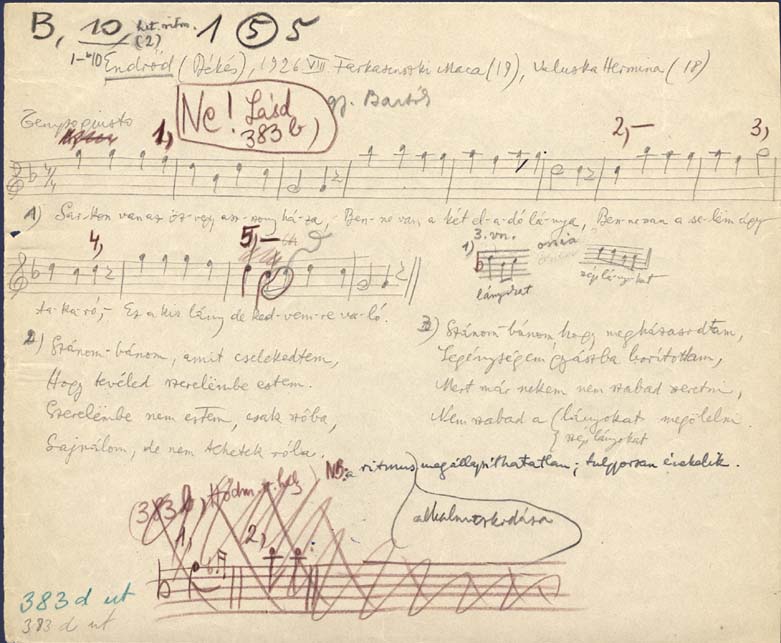 B, 10 1 (5) 5
(2)
1–10
Endrőd (Békés), 1926 VIII Farkasinszki Maca (19), Valuska Hermina (18)
Ne! Lásd
383 b)
gy. Bartók
Tempo giusto
1, 2,– 3,
1) Sarkon van az öz-vegy asz-szony há-za, Ben-ne van a két el-a-dó lá-nya, Ben-ne van a se-lëm ágy
4, 5,–
ta-ka-ró, – Ez a kis lány de ked-vem-re va-ló.
3. vn. ossia
1)
lányokat
szép lá-nyo-kat
2) Szánom-bánom, amit cselekedtem,
Hogy tevéled szerelëmbe estem.
Szerelëmbe nem estem, csak szóba,
Sajnálom, de nem tehetek róla.
3) Szánom-bánom, hogy megházasodtam,
Legénységem gyászba borítottam,
Mert már nekem nem szabad szeretni,
Nem szabad a (lányokat megölelni.
szép lányokat
NB. a ritmus megállapíthatatlan; túlgyorsan éneklik.
alkalmazkodása
383 b, Hódm.v.hely
1, 2,
383 d ut
383 d ut